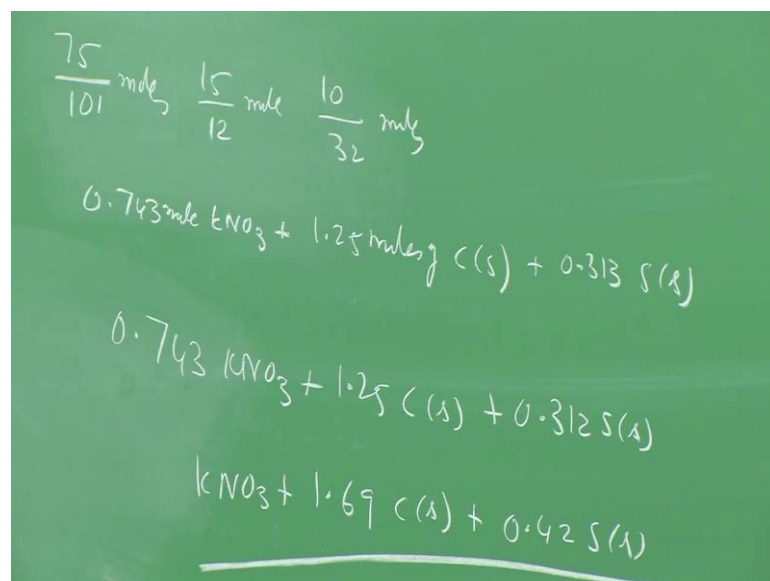 75/101 moles 15/12 mole 10/32 moles
0.743 mole KNO₃ + 1.25 moles of C(s) + 0.313 S(s)
0.743 KNO₃ + 1.25 C(s) + 0.312 S(s)
KNO₃ + 1.69 C(s) + 0.42 S(s)